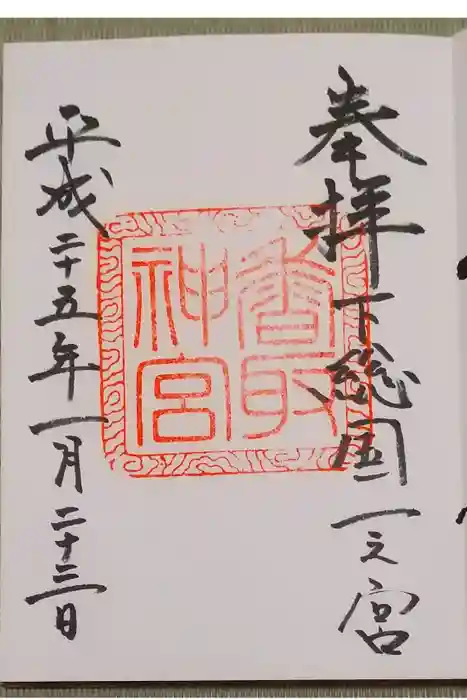 奉拝 下総国一之宮
香取
神宮
平成二十五年一月二十三日